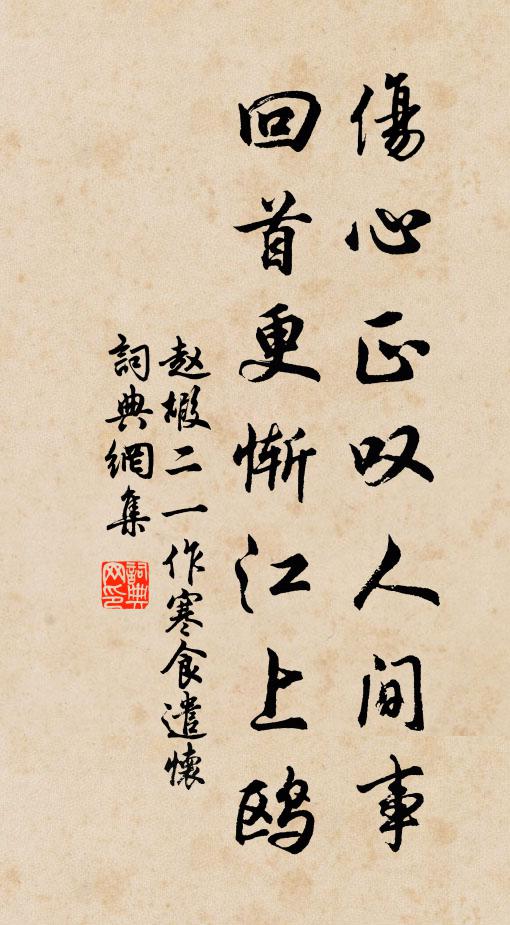 傷心正叹人间事
回首更惭江上鸥
赵嘏二一作寒食遣懷
詞典網集
詞典网印